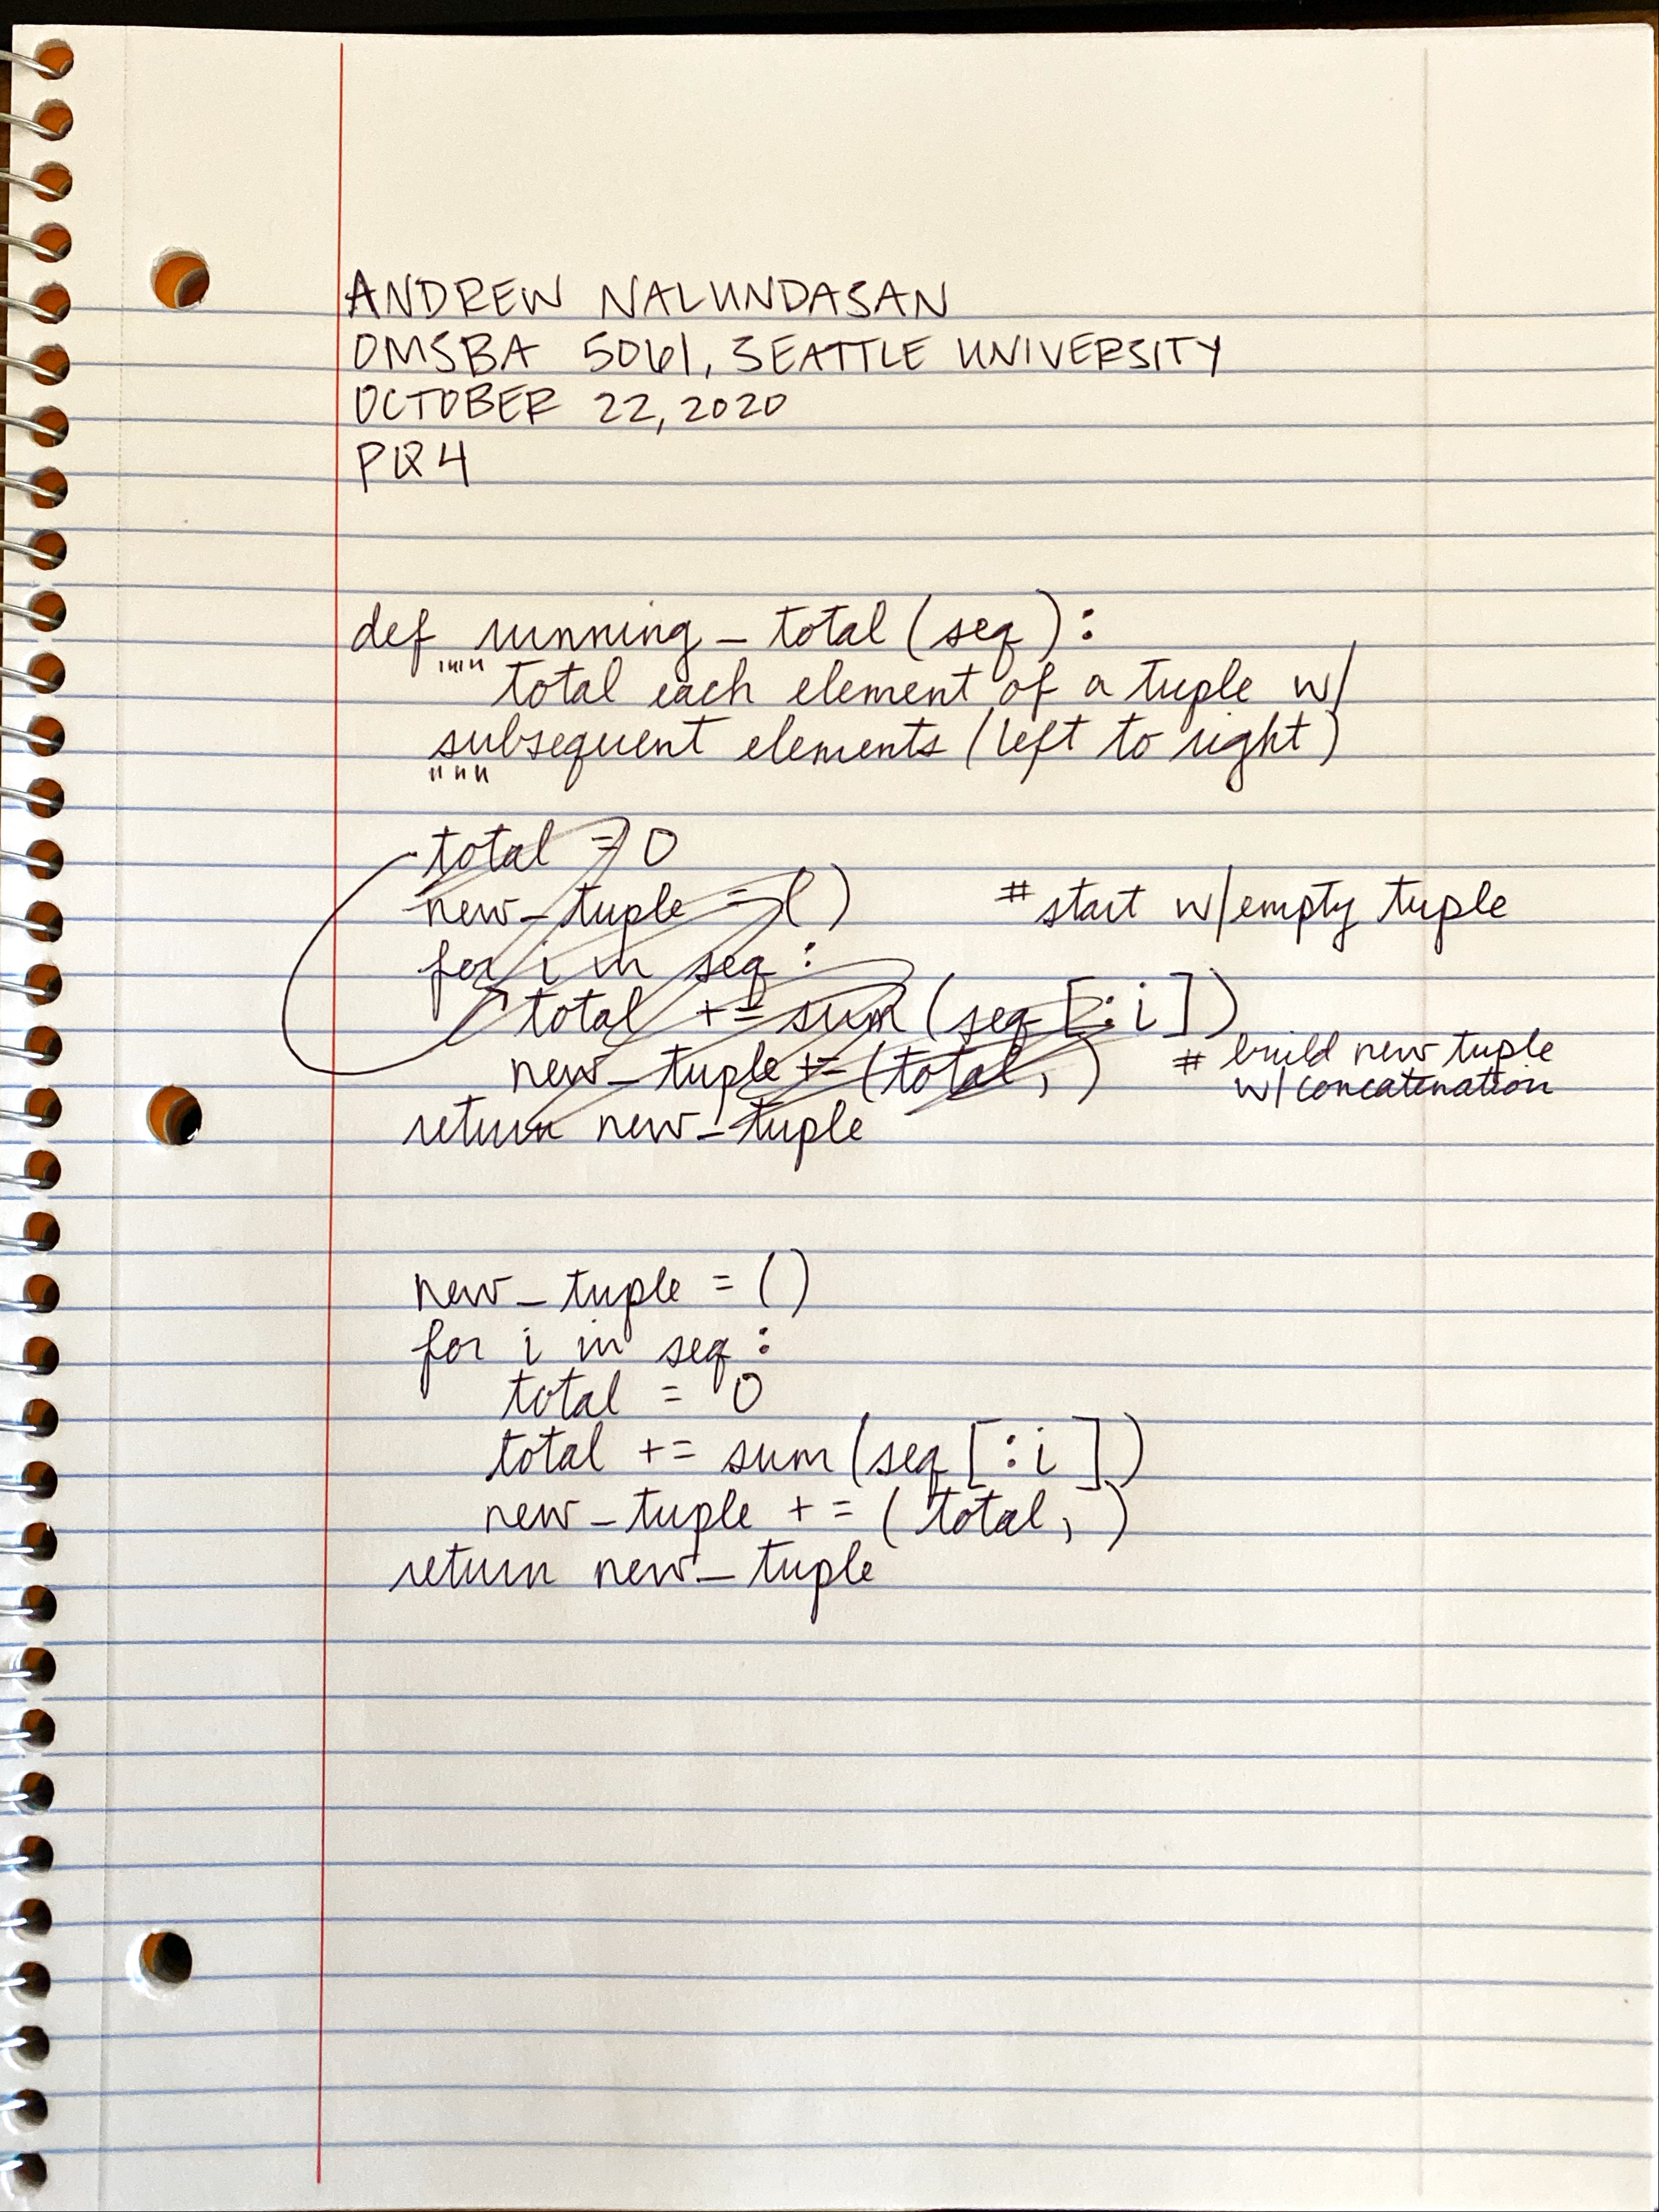 ANDREW NALUNDASAN
OMSBA 5061, SEATTLE UNIVERSITY
OCTOBER 22, 2020
PQ4
def running_total(seq):
""" total each element of a tuple w/
subsequent elements (left to right)
"""
total = 0
new_tuple = () # start w/empty tuple
for i in seq:
total += sum(seq[:i])
new_tuple += (total,) # build new tuple
w/concatenation
return new_tuple
new_tuple = ()
for i in seq:
total = 0
total += sum(seq[:i])
new_tuple += (total,)
return new_tuple